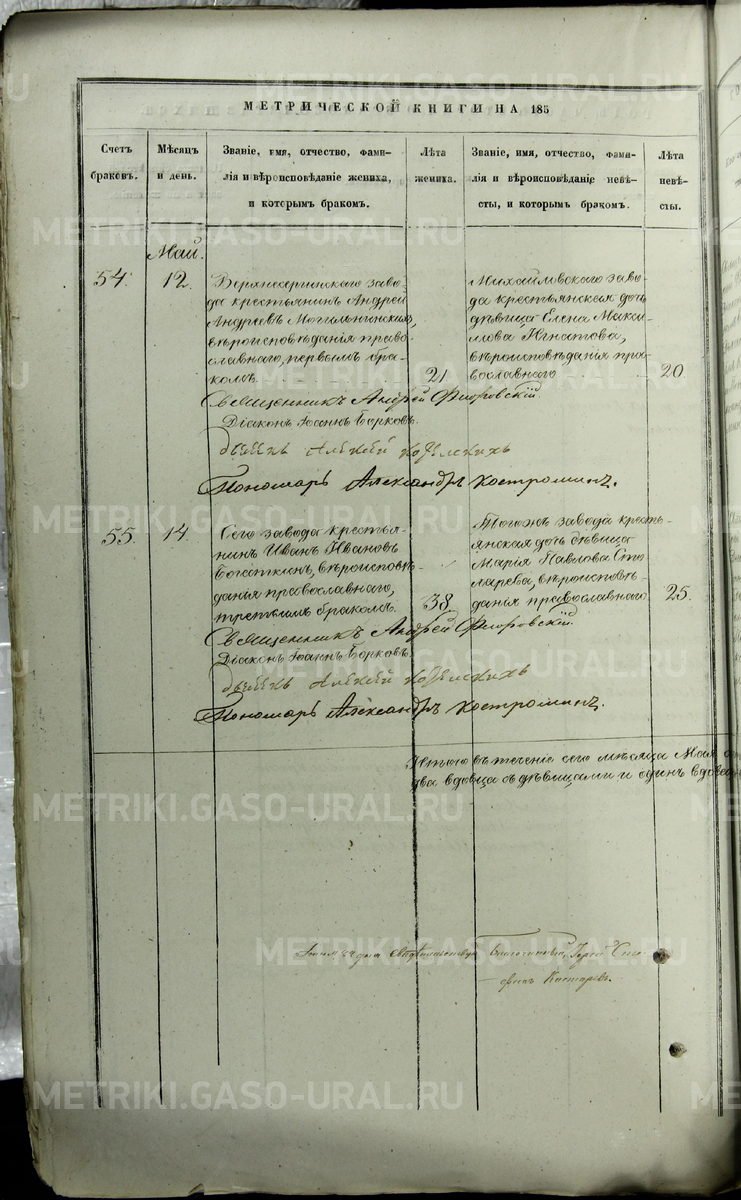 МЕТРИЧЕСКОЙ КНИГИ НА 185
Счетъ браковъ.
Мѣсяцъ и день.
Званіе, имя, отчество, фами-
лія и вѣроисповѣданіе жениха,
и которымъ бракомъ.
Лѣта жениха.
Званіе, имя, отчество, фами-
лія и вѣроисповѣданіе невѣ-
сты, и которымъ бракомъ.
Лѣта невѣ-
сты.
Май.
54.
12.
Верхнесергинскаго заво-
да крестьянинъ Андрей
Андреевъ Могильнинскихъ,
вѣроисповѣданія право-
славнаго, первымъ бра-
комъ.
21
Михайловскаго заво-
да крестьянская дочь
дѣвица Елена Макси-
мова Игнатова,
вѣроисповѣданія пра-
вославнаго
20.
Священникъ Андрей Флоровскій.
Діаконъ Іоаннъ Борковъ.
Алексій
Пономарь Александръ Костроминъ.
55.
14.
Сего завода крестья-
нинъ Иванъ Ивановъ
вѣроисповѣ-
данія православнаго,
третьимъ бракомъ.
38.
Тогоже завода кресть-
янская дочь дѣвица
Марія Павлова Сто-
ларева, вѣроисповѣ-
данія православнаго
25.
Священникъ Андрей Флоровскій.
Діаконъ Іоаннъ Борковъ.
Алексій
Пономарь Александръ Костроминъ.
Итого въ теченіе сего мѣсяца Мая
два вдовца съ дѣвицами и одинъ вдовецъ
Благочинный, Іерей
Костаревъ.
METRIKI.GASO-URAL.RU